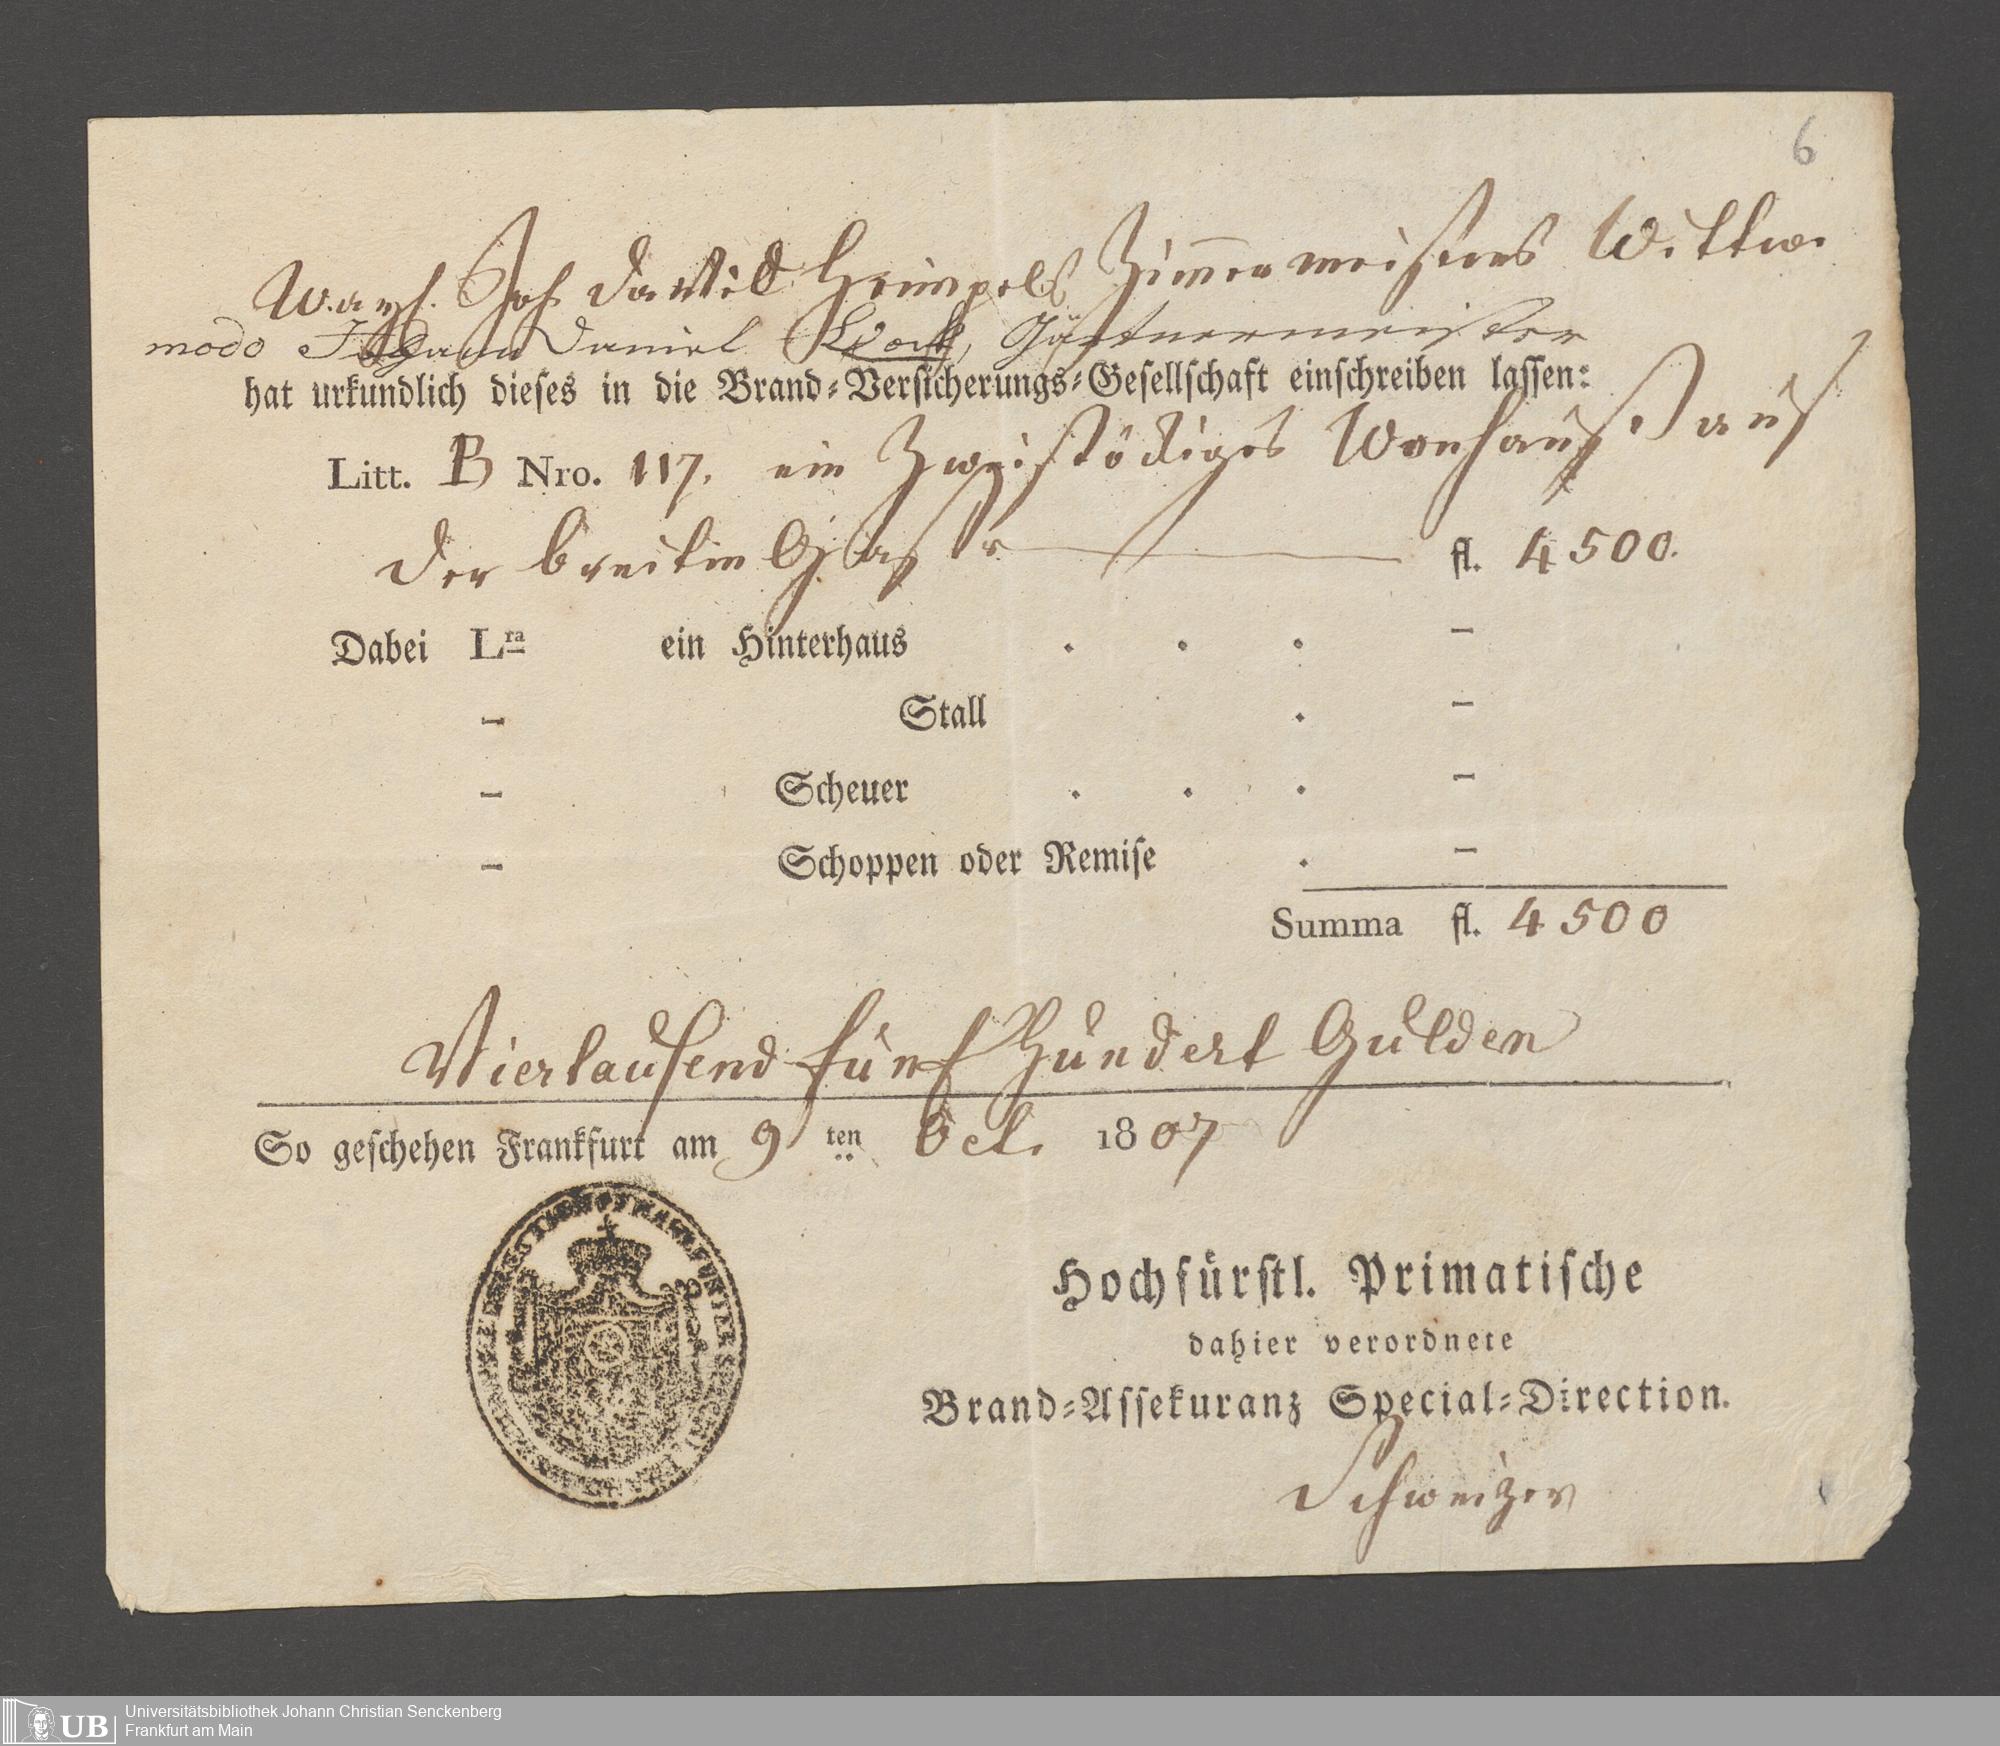 6
Weyl. Joh. David Heimpels Zimmermeisters Wittwe
modo Johann Daniel Gärtnermeister
hat urkundlich dieſes in die Brand-Verſicherungs-Geſellſchaft einſchreiben laſſen:
Litt. B Nro. 117. ein Zweistödiges Wonhauß auf
der breiten Gasse fl. 4500.
Dabei Lra ein Hinterhaus . . . –
– Stall . –
– Scheuer . . . –
– Schoppen oder Remiſe . –
Summa fl. 4500
Viertausend fünf Hundert Gulden
So geſchehen Frankfurt am 9ten Oct. 1807
Hochfürſtl. Primatiſche
dahier verordnete
Brand-Aſſekuranz Special-Direction.
Schweizer
Universitätsbibliothek Johann Christian Senckenberg
Frankfurt am Main
UB